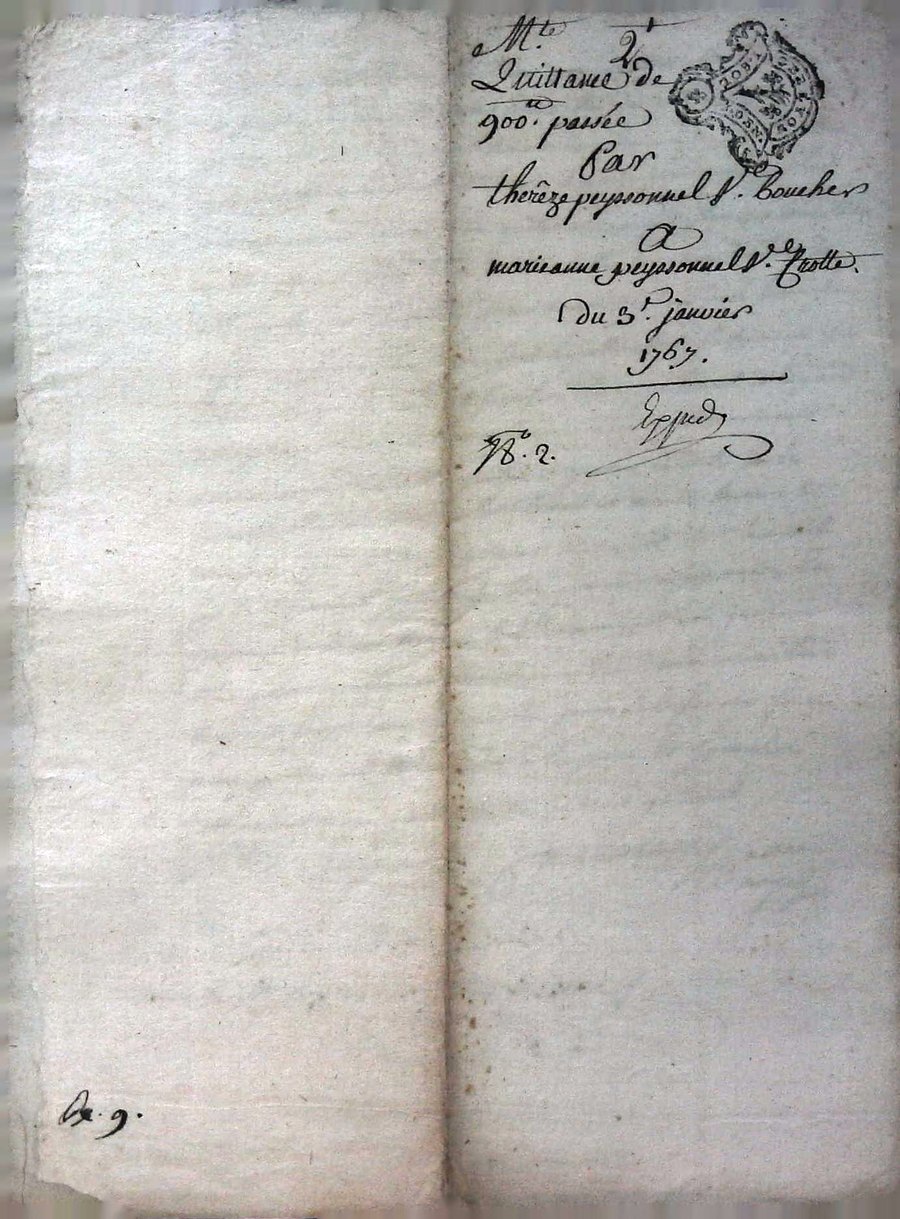 Mte. 2t
Quittance de
900tt. passée
Par
therêze peyssonnel V. Boucher
A
marieanne peyssonnel Vde. Crotte.
du 3t. janvier
1767.
Exped
No. 2.
9.